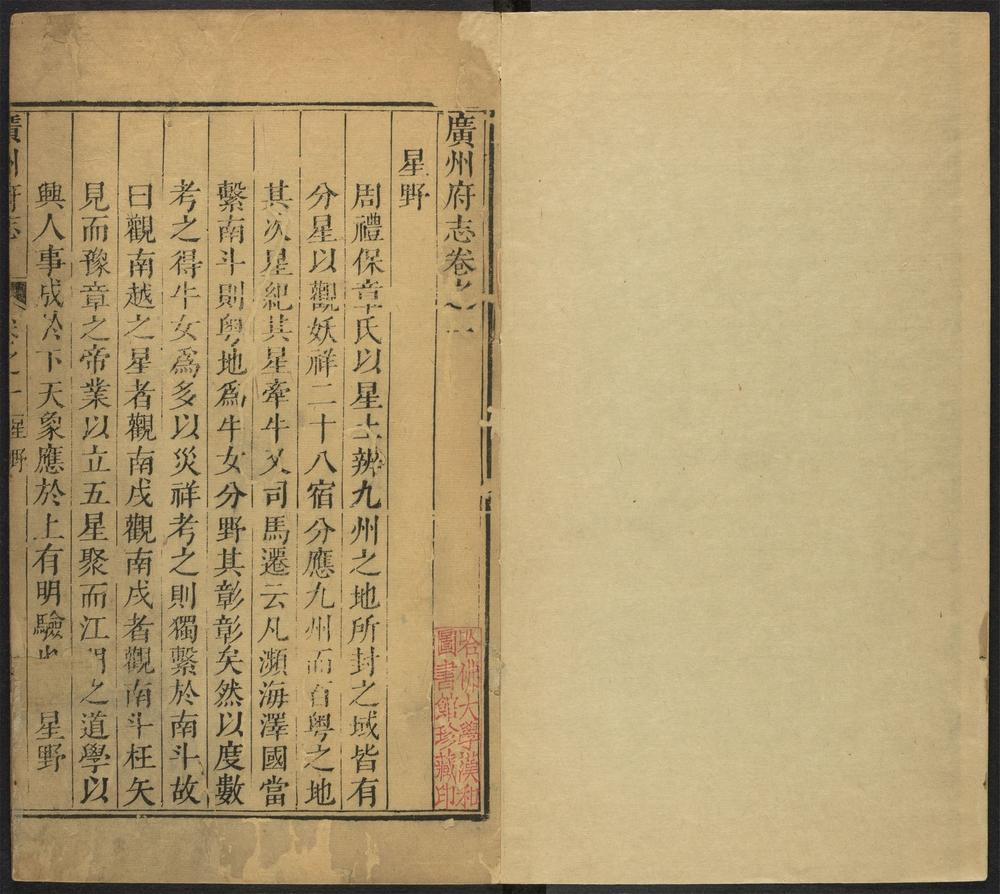 廣州府志卷之一
哈佛大學漢和
圖書館珍藏印
星野
周禮保章氏以星土辨九州之地所封之域皆有
分星以觀妖祥二十八宿分應九州而百粵之地
其次星紀其星牽牛又司馬遷云凡濱海澤國當
繫南斗則粵地爲牛女分野其彰彰矣然以度數
考之得牛女爲多以災祥考之則獨繫於南斗故
曰觀南越之星者觀南戌觀南戌者觀南斗枉矢
見而豫章之帝業以立五星聚而江門之道學以
興人事成於下天象應於上有明驗也 星野
廣州府志 卷之一 星野